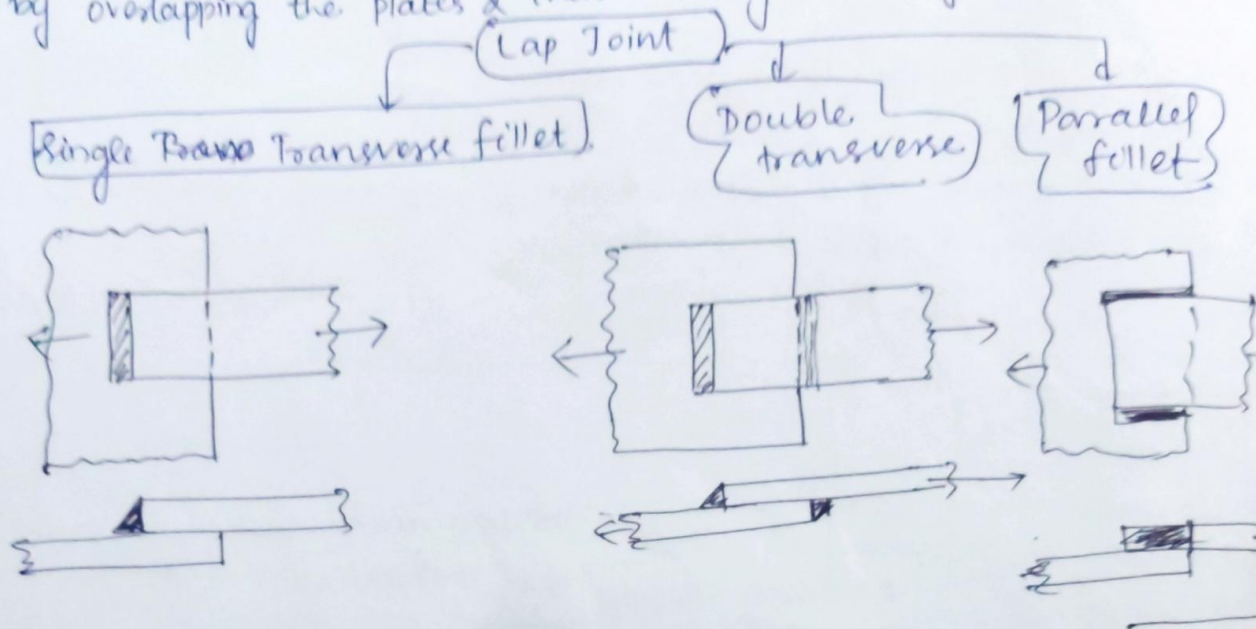 by overlapping the plates &
Lap Joint
Single Transverse fillet
Double
transverse
Parallel
fillet